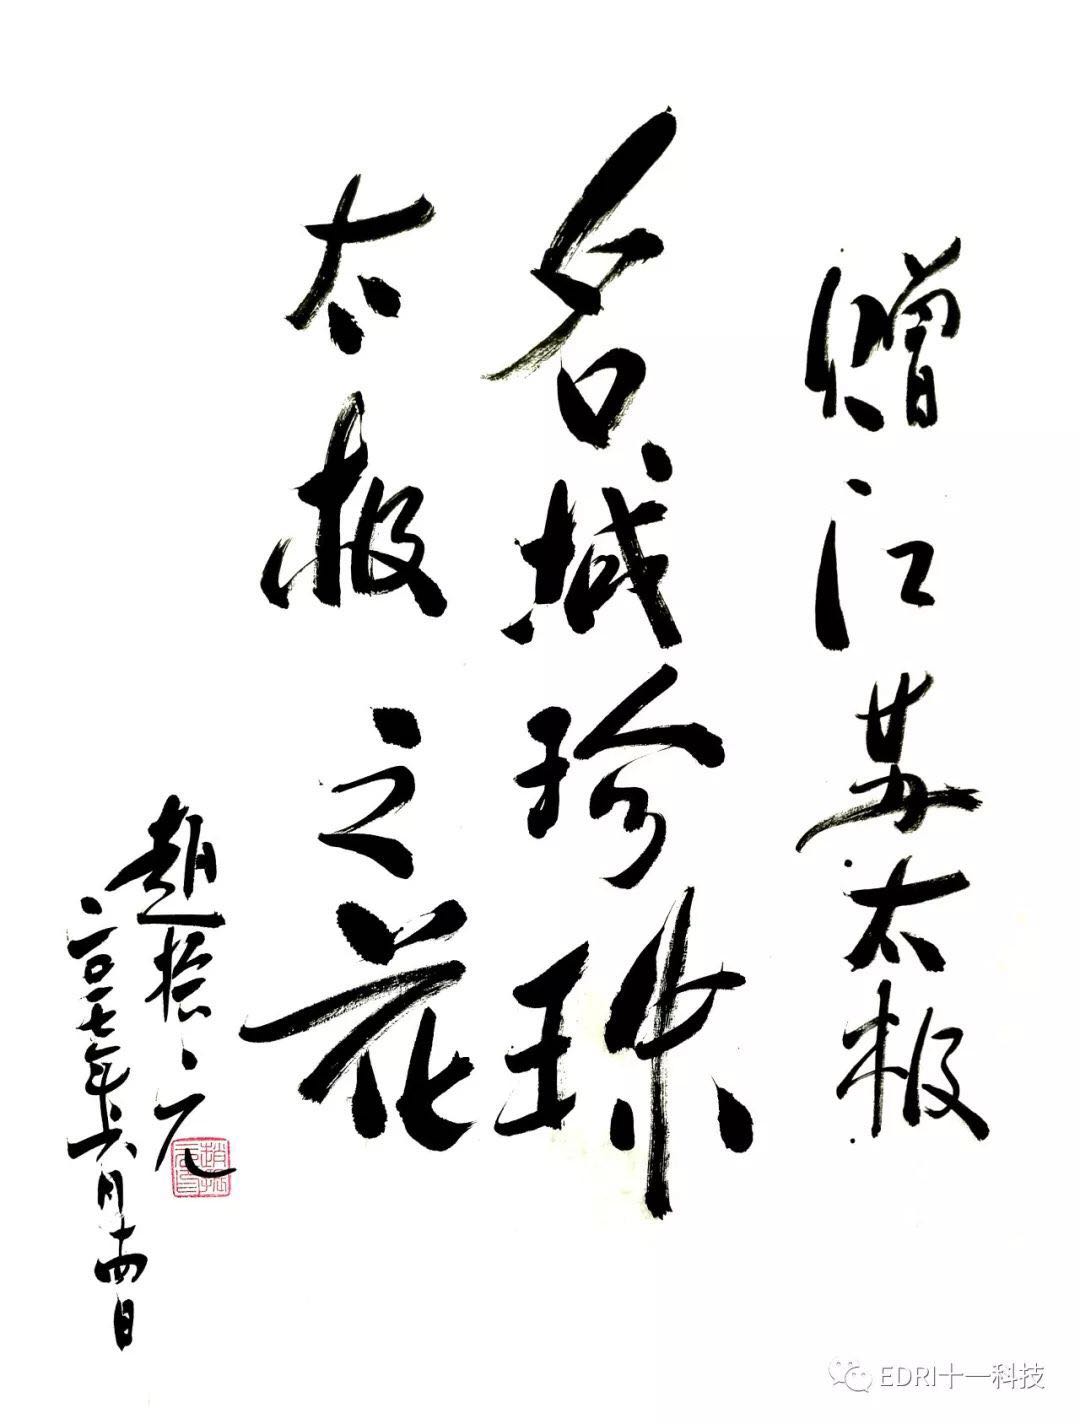 赠江苏太极
名城珍珠
太极之花
趙振元
二〇一七年六月十四日
EDRI十一科技